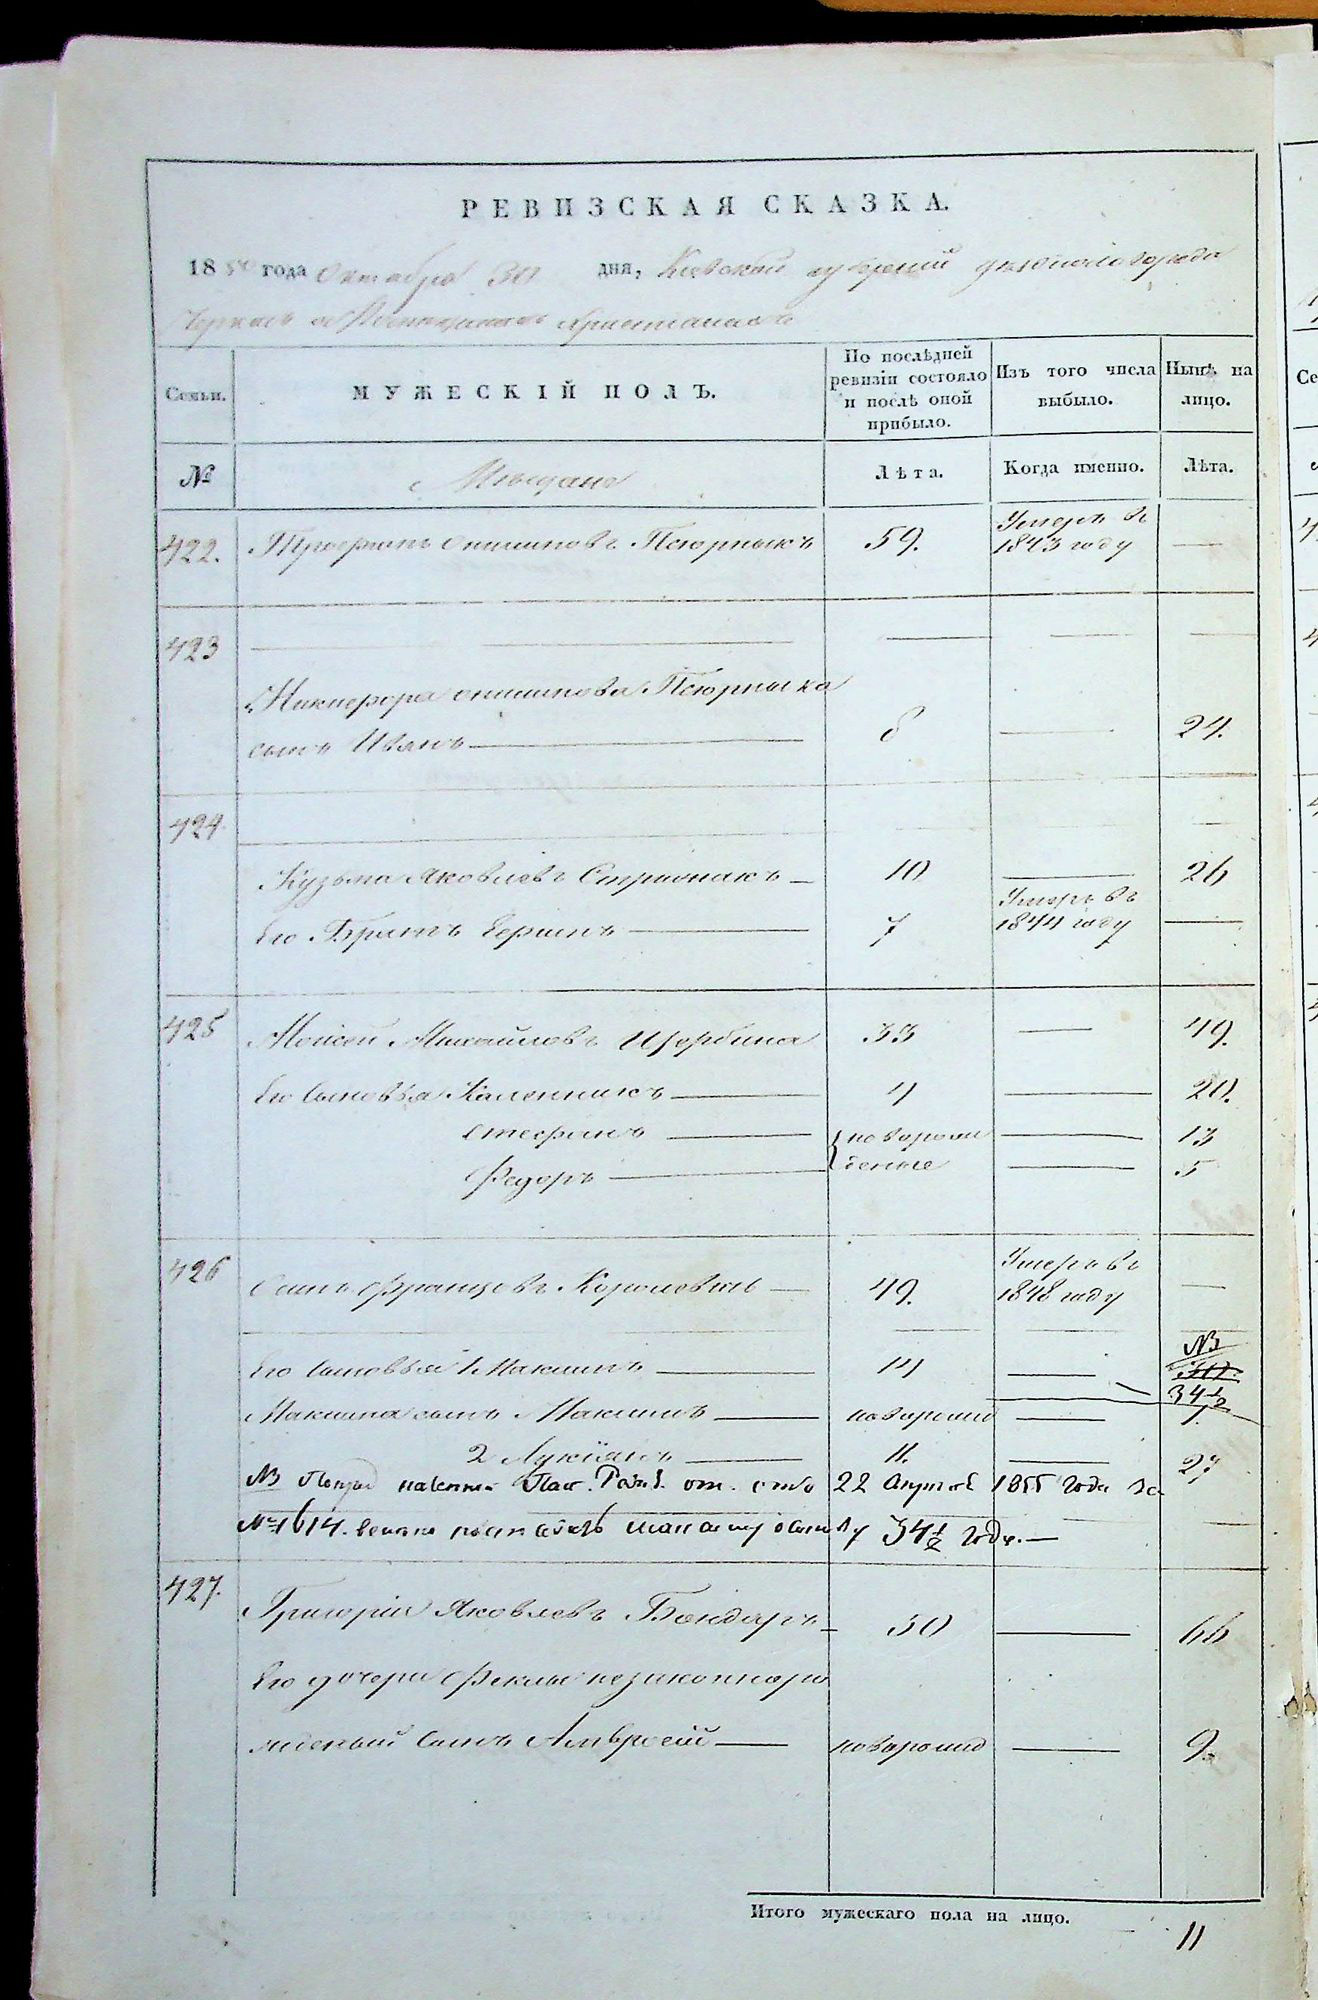 РЕВИЗСКАЯ СКАЗКА.
1850 года Октября 30 дня, Киевской губернии уезднаго города
Черкас о христианах
Семьи. МУЖЕСКІЙ ПОЛЪ. По послѣдней ревизіи состояло и послѣ оной прибыло. Изъ того числа выбыло. Нынѣ на лицо.
№ Мещане Лѣта. Когда именно. Лѣта.
422. Трофимъ Онишковъ Псюрныкъ 59. Умеръ въ 1843 году —
423
Никифора Онишкова Псюрныка
сынъ Иванъ 8 — 24.
424.
Кузьма Яковлевъ 10 — 26
Его Братъ 7 Умеръ въ 1844 году —
425 Моисей Михайловъ Щербина 33 — 49.
Его Сыновья Каленникъ 4 — 20.
Стефанъ новорож — 13
Федоръ денные — 5
426 Осипъ Францовъ 49. Умеръ въ 1848 году —
Его Сыновья 1 Максимъ 14 — NB 30. 34½
Максима сынъ Максимъ новорожд — 1.
2 Лукіянъ 11. — 27
NB Каз. Пал. от. 22 Апреля 1855 года за
№ 1614. 34½ года. —
427. Григорій Яковлевъ Бондарь 50 — 66
Его дочери Феклы незаконноро
жденый Сынъ Амвросій новорожд — 9.
Итого мужескаго пола на лицо. 11